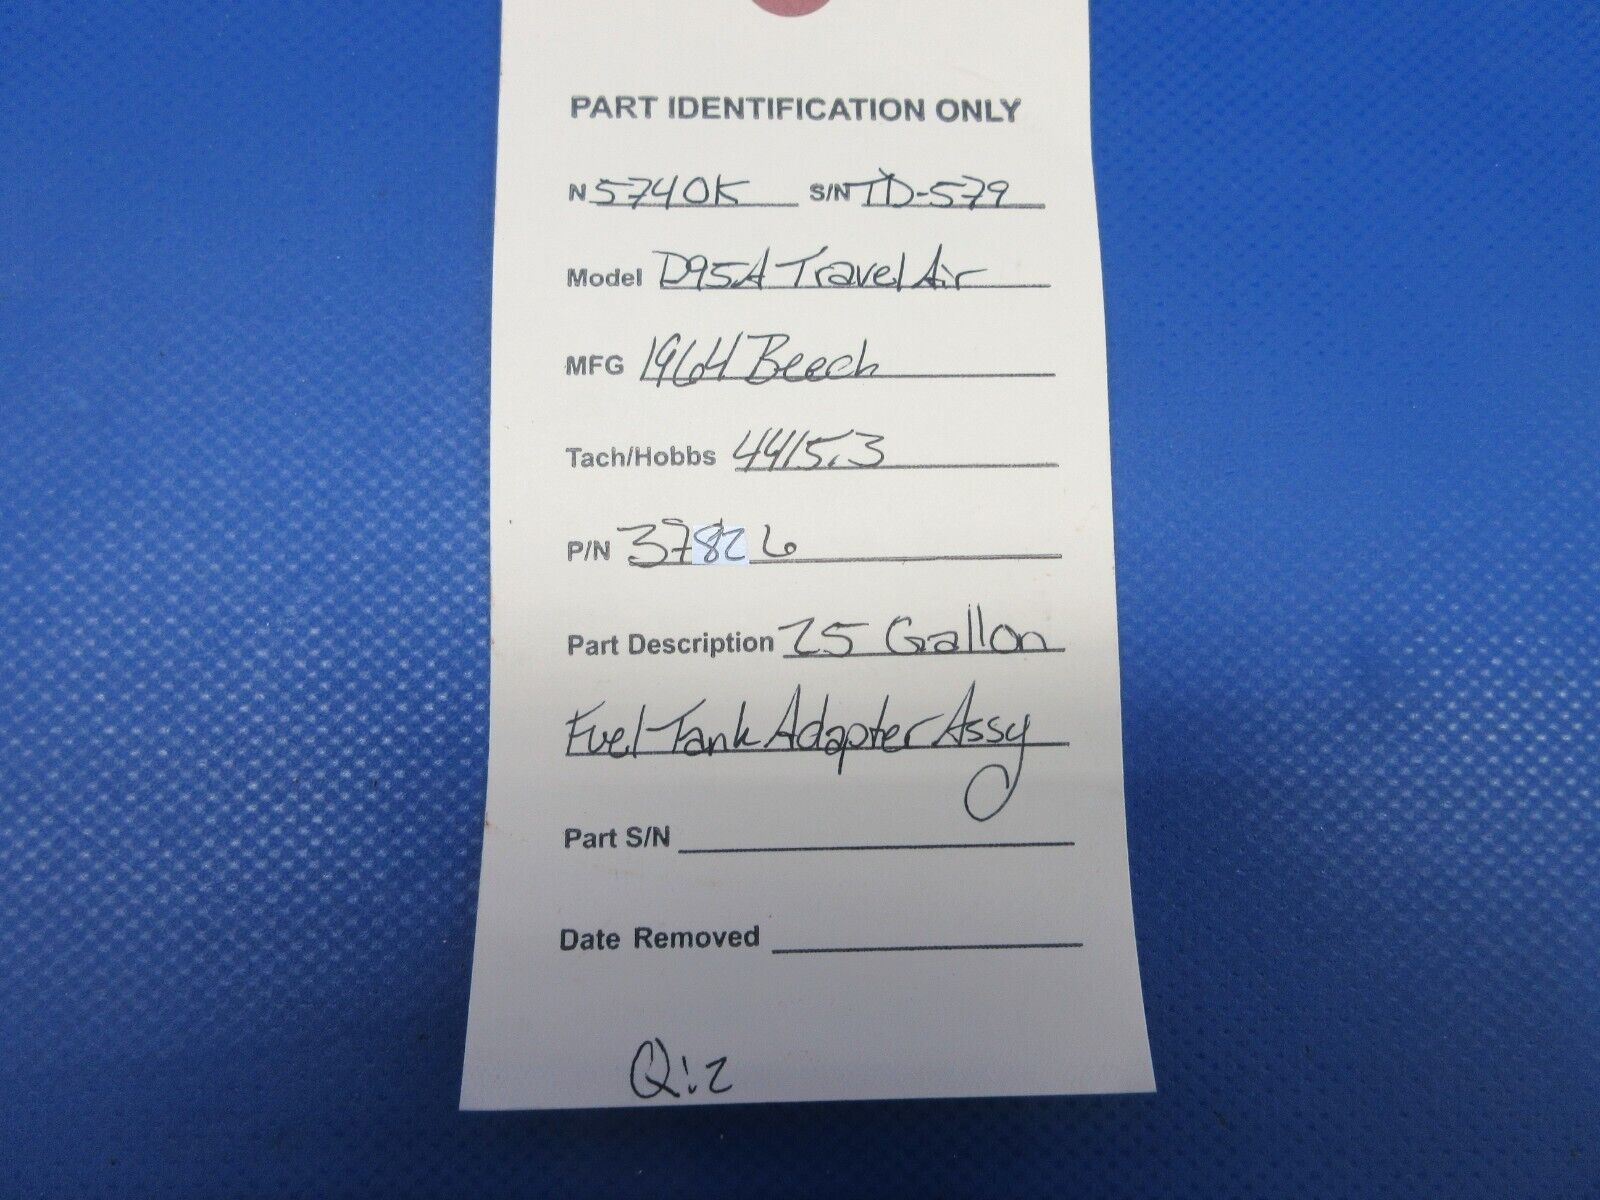 PART IDENTIFICATION ONLY
N 5740K S/N TD-579
Model D95A Travel Air
MFG 1964 Beech
Tach/Hobbs 4415.3
P/N 37826
Part Description 25 Gallon
Fuel Tank Adapter Assy
Part S/N
Date Removed
Q:2